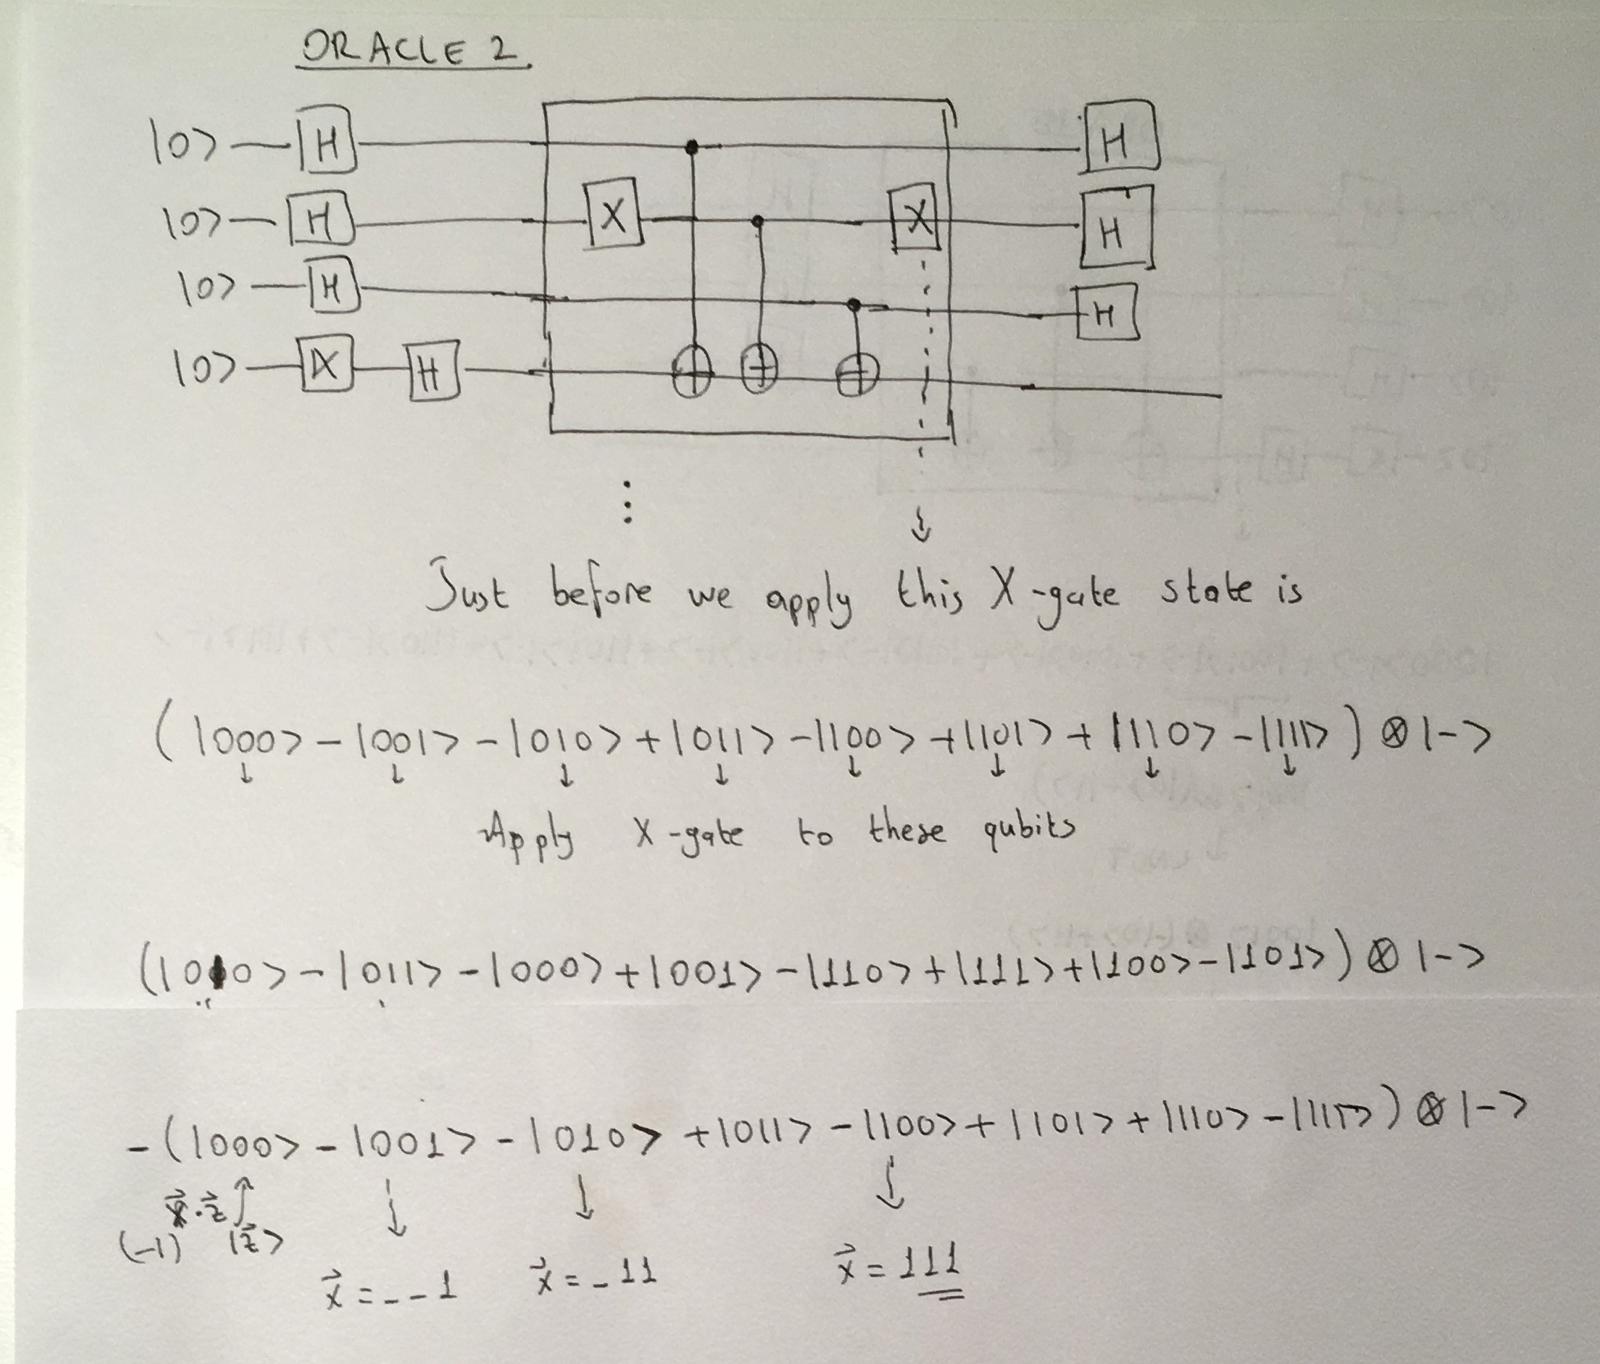 ORACLE 2.
|0> H H
|0> H X X H
|0> H H
|0> X H
⋮
Just before we apply this X-gate state is
(|000> - |001> - |010> + |011> - |100> + |101> + |110> - |111>) ⊗ |->
Apply X-gate to these qubits
(|010> - |011> - |000> + |001> - |110> + |111> + |100> - |101>) ⊗ |->
-(|000> - |001> - |010> + |011> - |100> + |101> + |110> - |111>) ⊗ |->
x⃗·z⃗
(-1) |z⃗>
x⃗ = _ _ 1 x⃗ = _ 11 x⃗ = 111